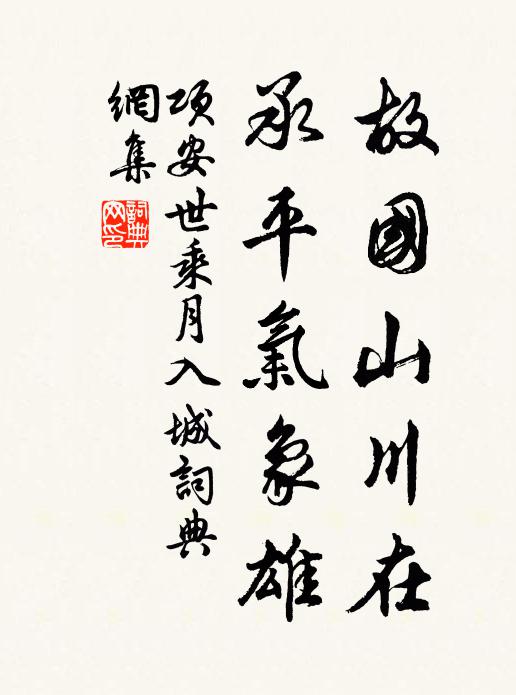 故國山川在
承平氣象雄
項安世乘月入城詞典
網集
詞典網印